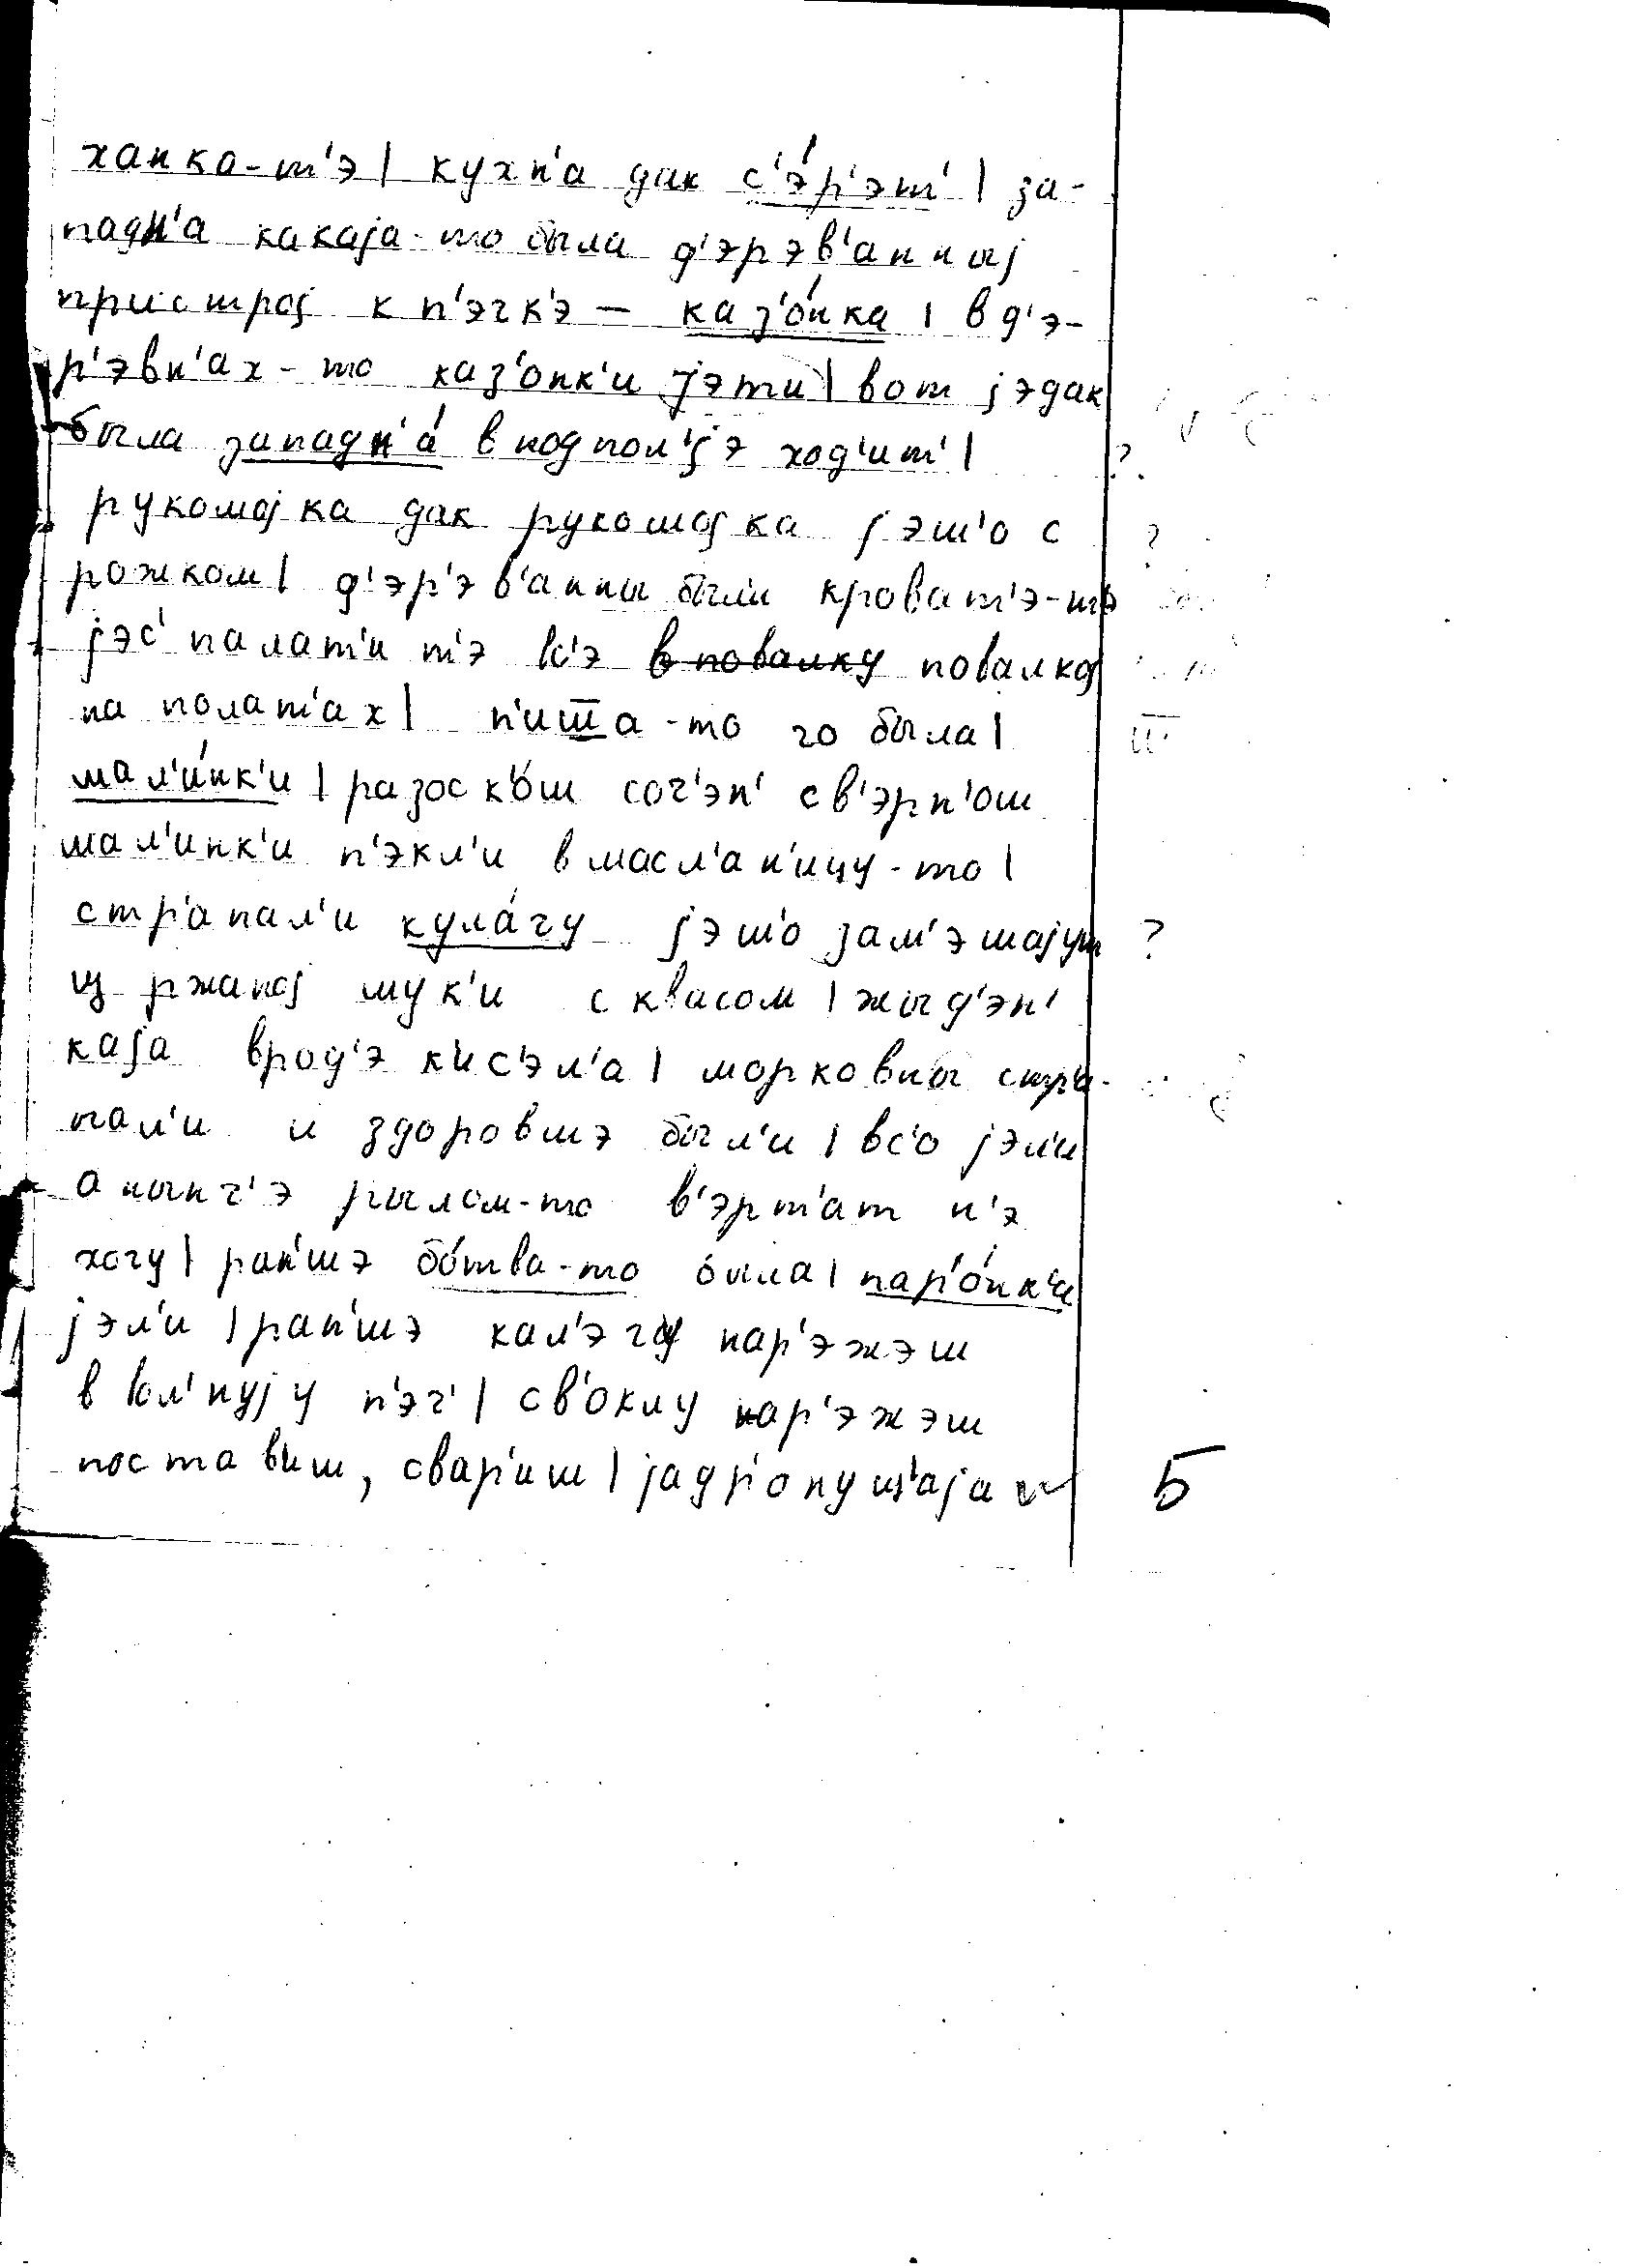 ханка-т'э| кухн'а дак с'э́р'эт' | за-
падн'а какаја-то была д'эрэв'анныј
пристрој к п'эчк'э — каз'о́нка | в д'э-
р'эвн'ах-то каз'онк'и јэти| вот јэдак
была западн'а́ в подпол'јэ ход'ит'|
рукомојка дак рукомојка јэш'о с
рожком| д'эр'эв'анны были кроват'э-то
јэс' палат'и т'э вс'э в повалку повалкој
на полат'ах| п'иш̅а-то чо была|
мал'и́нк'и | разоск'о́ш соч'эн' св'эрн'ош
мал'инк'и п'экл'и в масл'ан'ицу-то|
стр'апал'и кула́гу јэш'о зам'эшајут ?
из ржаној мук'и с квасом | жыд'эн'
каја врод'э к'ис'эл'а | морковны стр'а-
пал'и и здоровшэ был'и | вс'о јэл'и
а нынч'э рылом-то в'эрт'ат н'э
хочу| ран'шэ бо́тва-то была| пар'о́нк'и
јэл'и | ран'шэ кал'эгу нар'эжэш
в вол'нују п'эч' | св'оклу нар'эжэш
постав'иш, свар'иш | јадр'онушч'аја 5